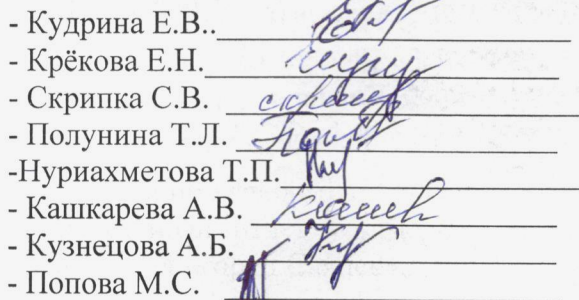 - Кудрина Е.В..
- Крёкова Е.Н.
- Скрипка С.В.
- Полунина Т.Л.
-Нуриахметова Т.П.
- Кашкарева А.В.
- Кузнецова А.Б.
- Попова М.С.